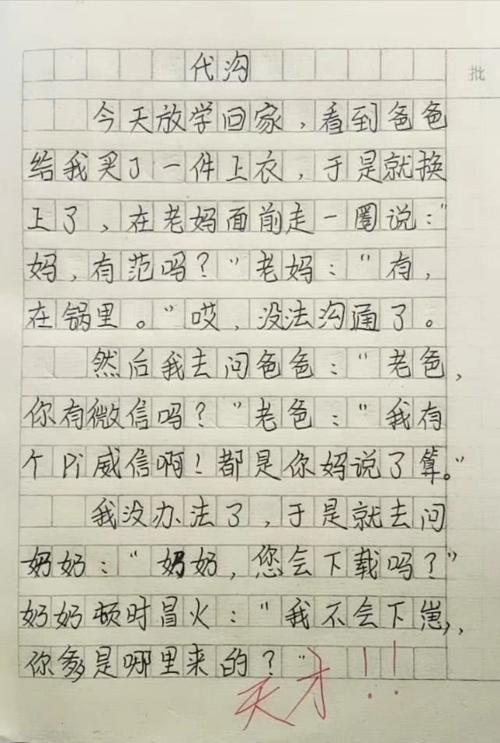 代沟
批
今天放学回家，看到爸爸
给我买了一件上衣，于是就换
上了，在老妈面前走一圈说："
妈，有范吗？"老妈："有，
在锅里。"哎，没法沟通了。
然后我去问爸爸："老爸，
你有微信吗？"老爸："我有
个Pi威信啊！都是你妈说了算。"
我没办法了，于是就去问
奶奶："奶奶，您会下载吗？"
奶奶顿时冒火："我不会下崽，
你爹是哪里来的？"
天才!!